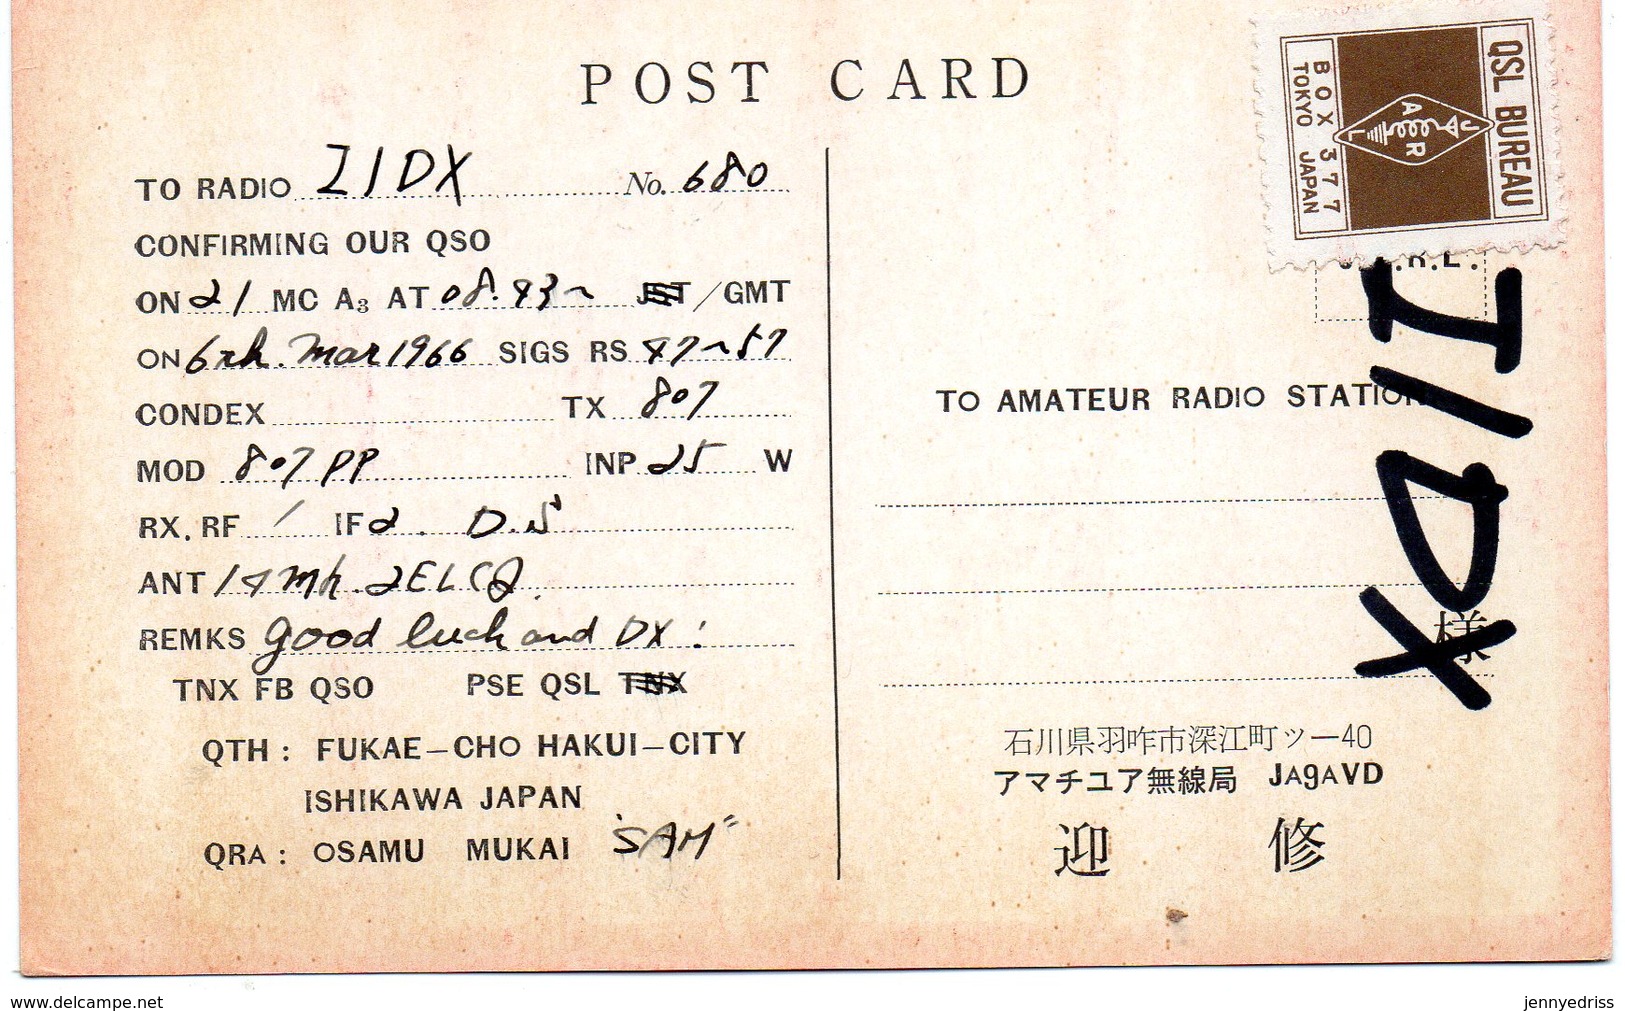 POST CARD
TO RADIO I1DX No. 680
CONFIRMING OUR QSO
ON 21 MC A3 AT 08.43~ JST/GMT
ON 6th. Mar 1966 SIGS RS 47~57
CONDEX TX 807
MOD 807 PP INP 25 W
RX. RF 1 IF 2. D.S
ANT 14 Mh. 2EL CQ.
REMKS Good luck and DX!
TNX FB QSO PSE QSL TNX
QTH : FUKAE-CHO HAKUI-CITY
ISHIKAWA JAPAN
QRA : OSAMU MUKAI "SAM"
QSL BUREAU
J A R L
BOX 377
TOKYO JAPAN
J.A.R.L.
I1DX
TO AMATEUR RADIO STATION
様
石川県羽咋市深江町ツー40
アマチュア無線局 JA9AVD
迎 修
www.delcampe.net
jennyedriss